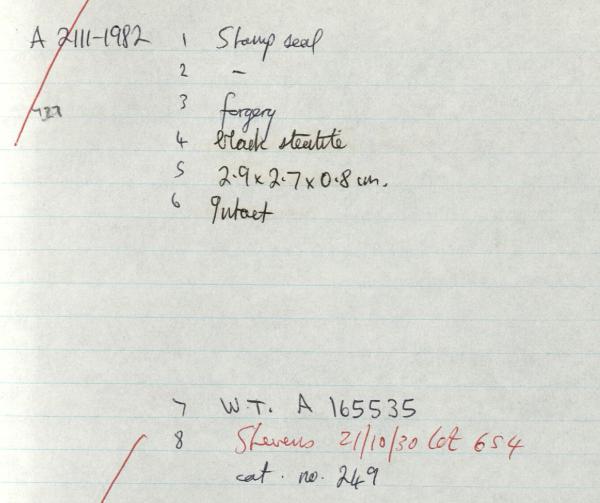 A 2111-1982 1 Stamp seal
2 -
3 forgery
4 black steatite
5 2.9 x 2.7 x 0.8 cm.
6 Intact
7 W.T. A 165535
8 Stevens 21/10/30 Lot 654
cat. no. 249